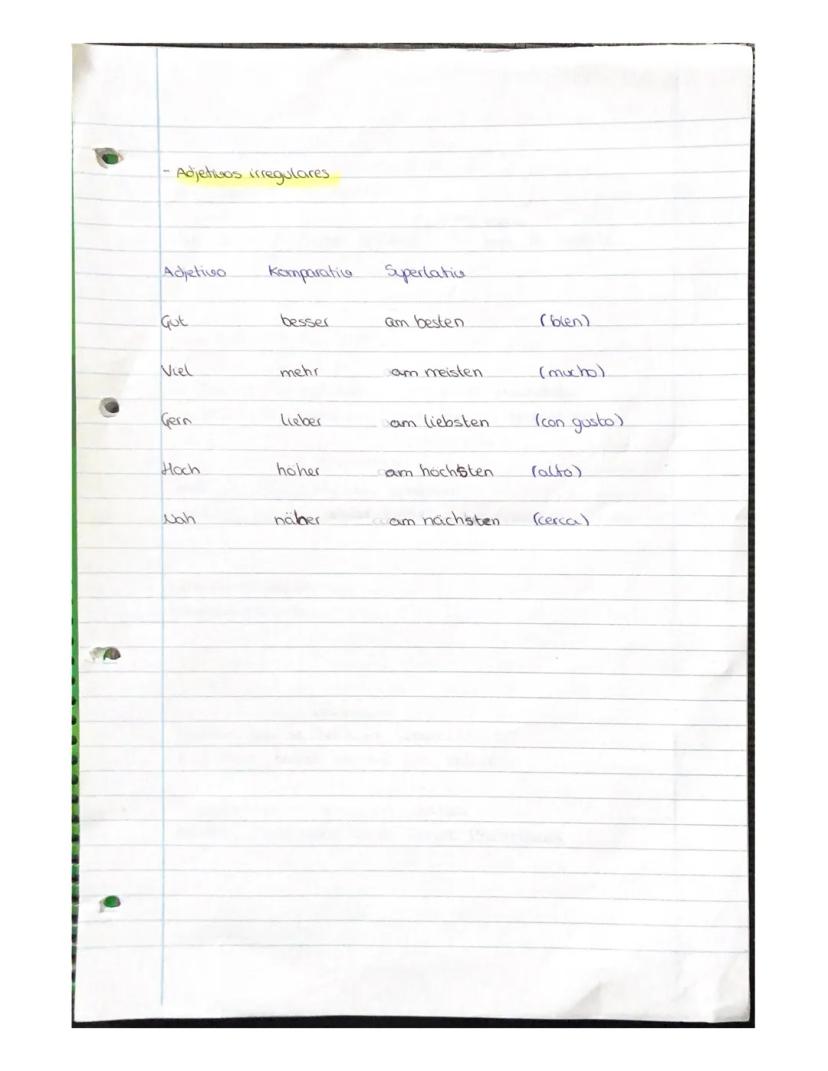 - Adjetivos irregulares
Adjetivo Komparativ Superlativ
Gut besser am besten (bien)
Viel mehr am meisten (mucho)
Gern lieber am liebsten (con gusto)
Hoch hoher am hochsten (alto)
Nah näher am nächsten (cerca)